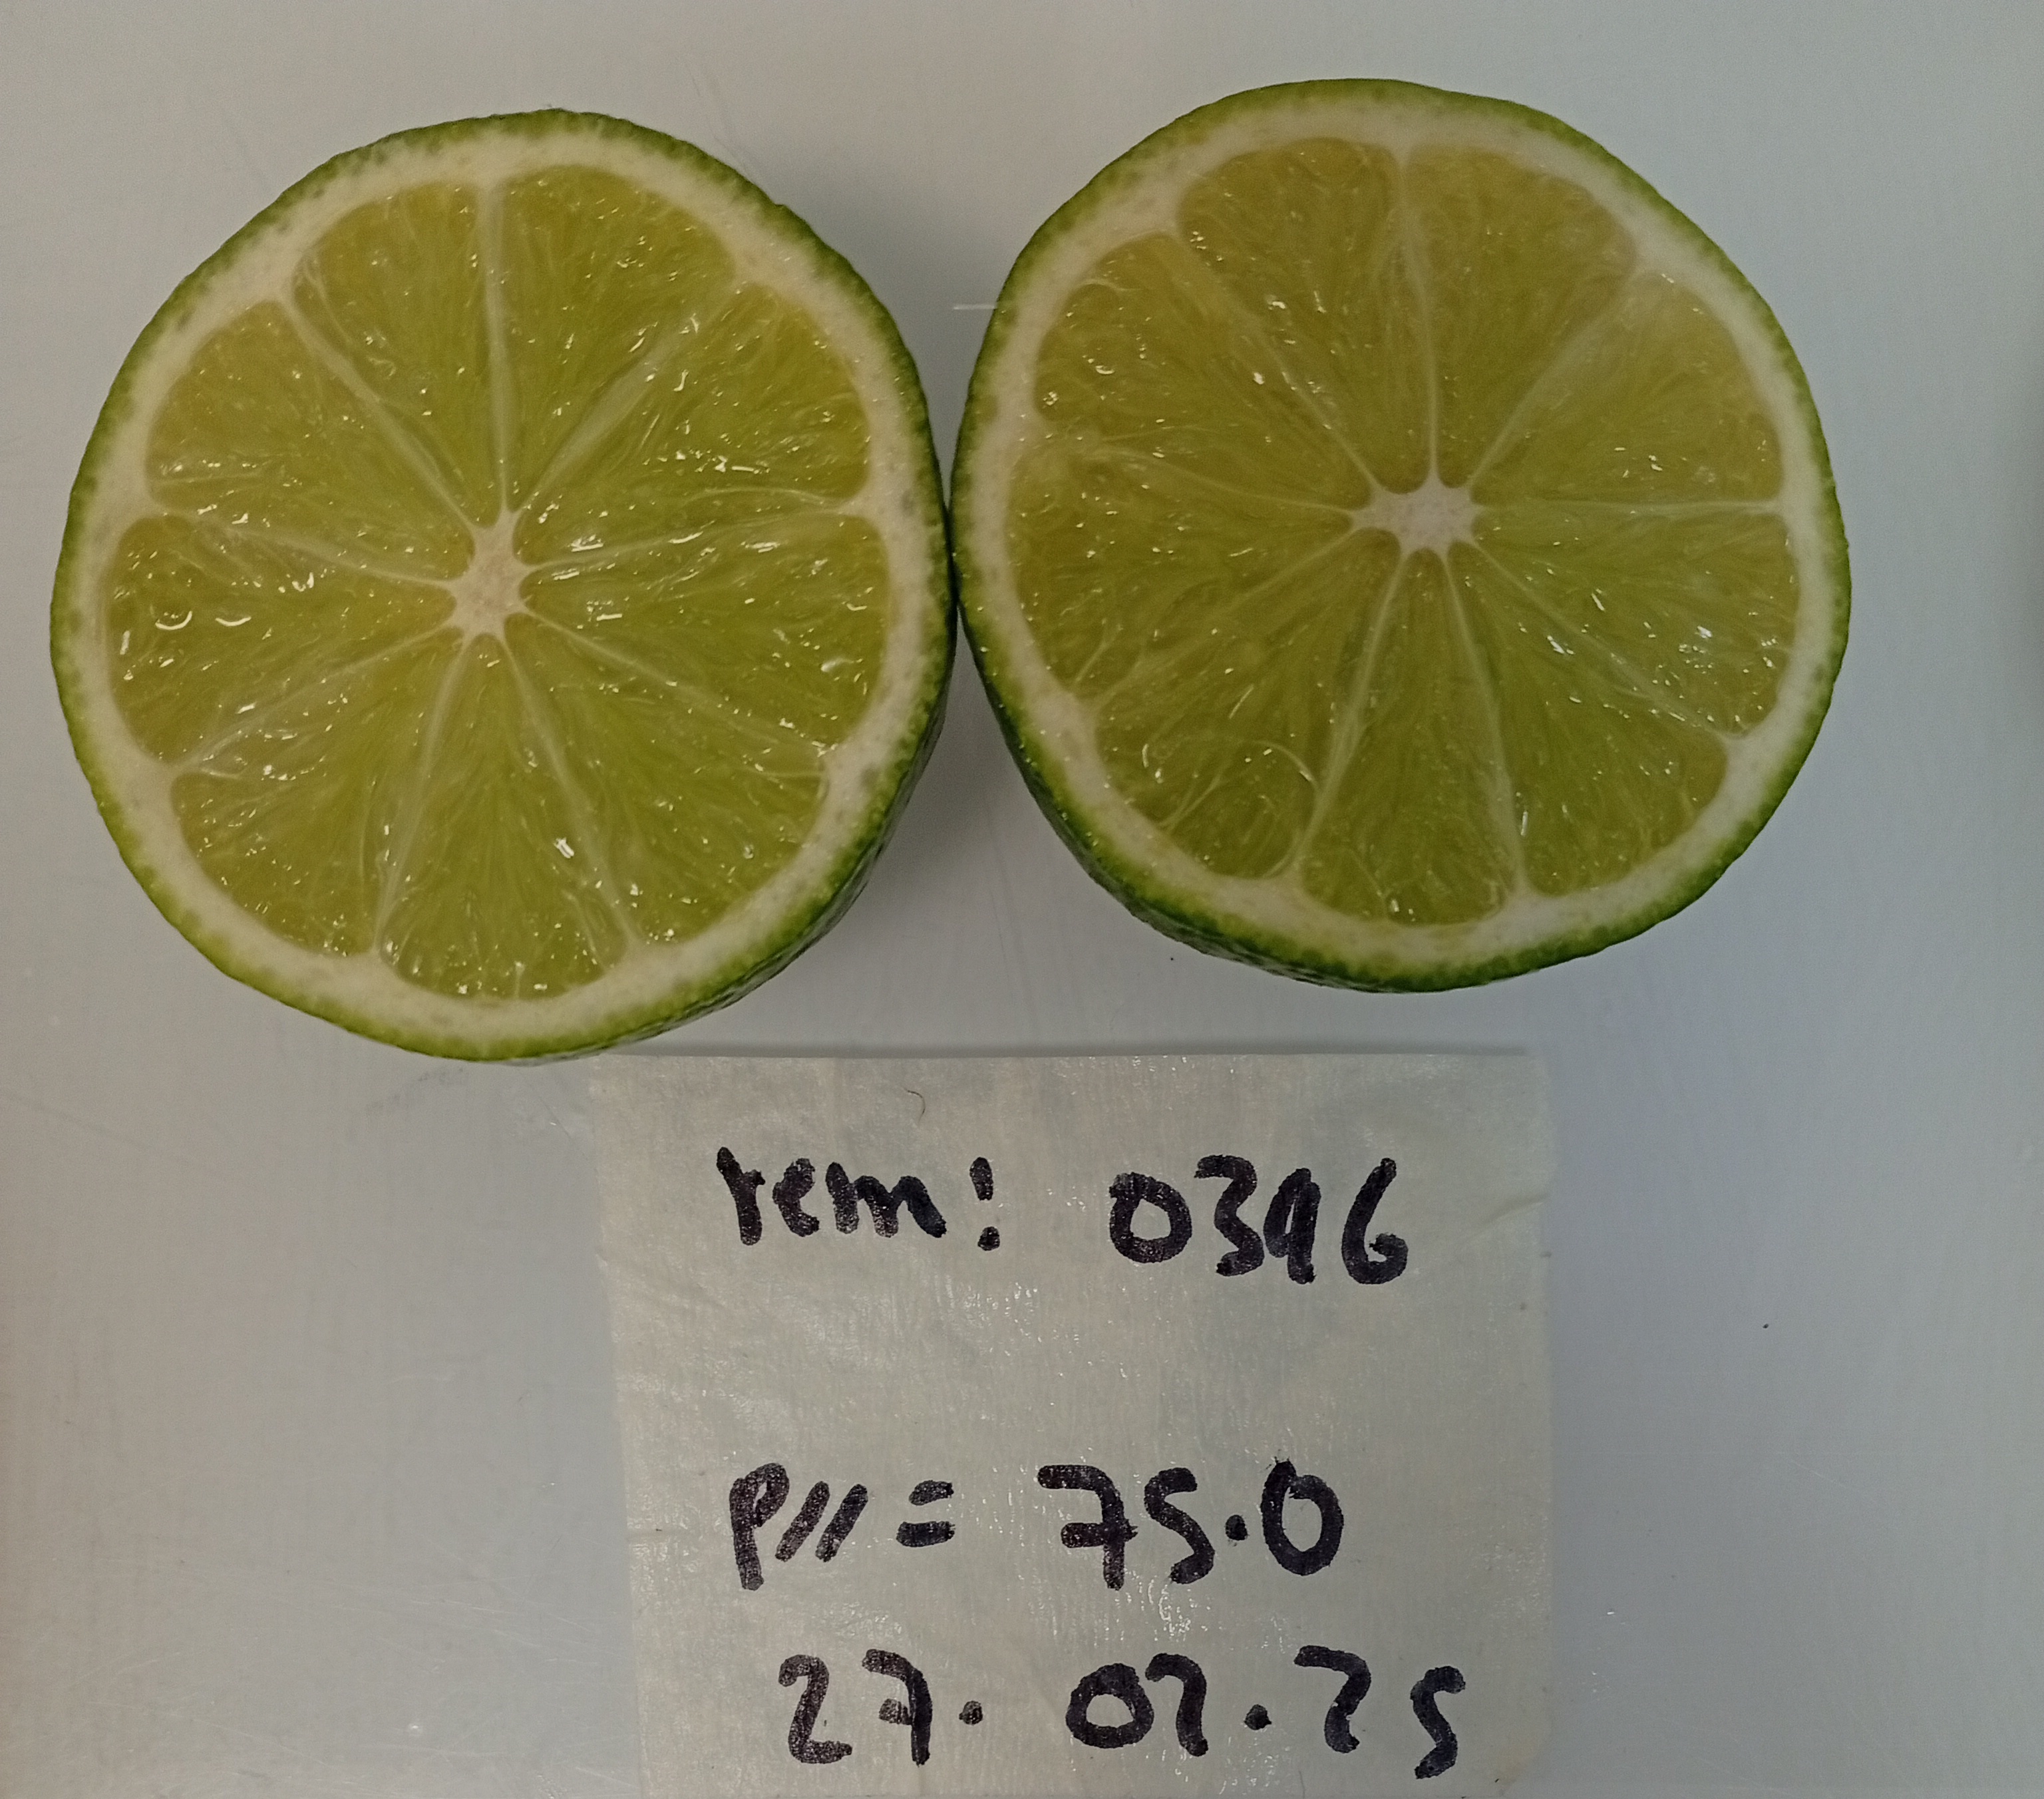 rem: 0396
P11 = 75.0
27. 02. 25